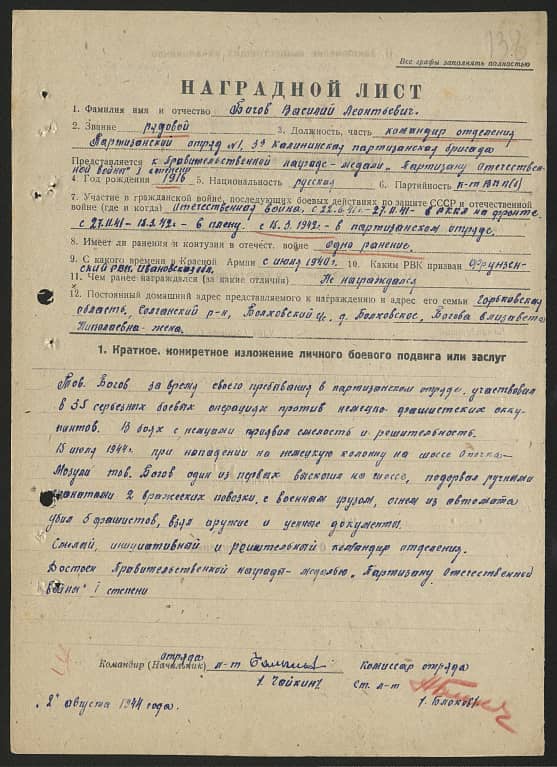 138
Все графы заполнять полностью
НАГРАДНОЙ ЛИСТ
1. Фамилия имя и отчество Богов Василий Леонтьевич.
2. Звание рядовой 3. Должность, часть командир отделения
Партизанский отряд №1, 3й Калининская партизанская бригада
Представляется к Правительственной награде - медали "Партизану Отечествен-
ной войны" I степени
4. Год рождения 1916 5. Национальность русский 6. Партийность к-т ВКП(б)
7. Участие в гражданской войне, последующих боевых действиях по защите СССР и отечественной
войне (где и когда) Отечественная война, с 22.6.41г.-27.11.41- в РККА на фронте
с 27.11.41-15.3.42г.- в плену. с 15.3.1942г.- в партизанском отряде.
8. Имеет ли ранения и контузии в отечест. войне одно ранение.
9. С какого времени в Красной Армии с июля 1940г. 10. Каким РВК призван Фрунзен-
ский РВК, Ивановская обл.
11. Чем ранее награждался (за какие отличия) Не награждался
12. Постоянный домашний адрес представляемого к награждению и адрес его семьи Горьковская
область, Салганский р-н, Болховский с/с, д. Болховское, Богова Елизавета
Николаевна - жена.
1. Краткое, конкретное изложение личного боевого подвига или заслуг
Тов. Богов за время своего пребывания в партизанском отряде, участвовал
в 35 серьезных боевых операциях против немецко-фашистских окку-
пантов. В боях с немцами проявил смелость и решительность.
15 июля 1944г. при нападении на немецкую колонну на шоссе Опочка-
Мозули тов. Богов один из первых выскочил на шоссе, подорвал ручными
гранатами 2 вражеских повозки, с военным грузом, огнем из автомата
убил 5 фашистов, взял оружие и ценные документы.
Смелый, инициативный и решительный командир отделения.
Достоен Правительственной награды- медалью "Партизану Отечественной
войны" I степени
отряда
Командир (Начальник) л-т
/ Чайкин/
Комиссар отряда
Ст. л-т
/. Блохов/
"2" августа 1944 года.